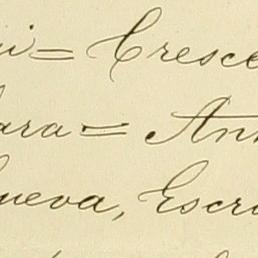 i= Cresce
ara= An
ueva, Escri